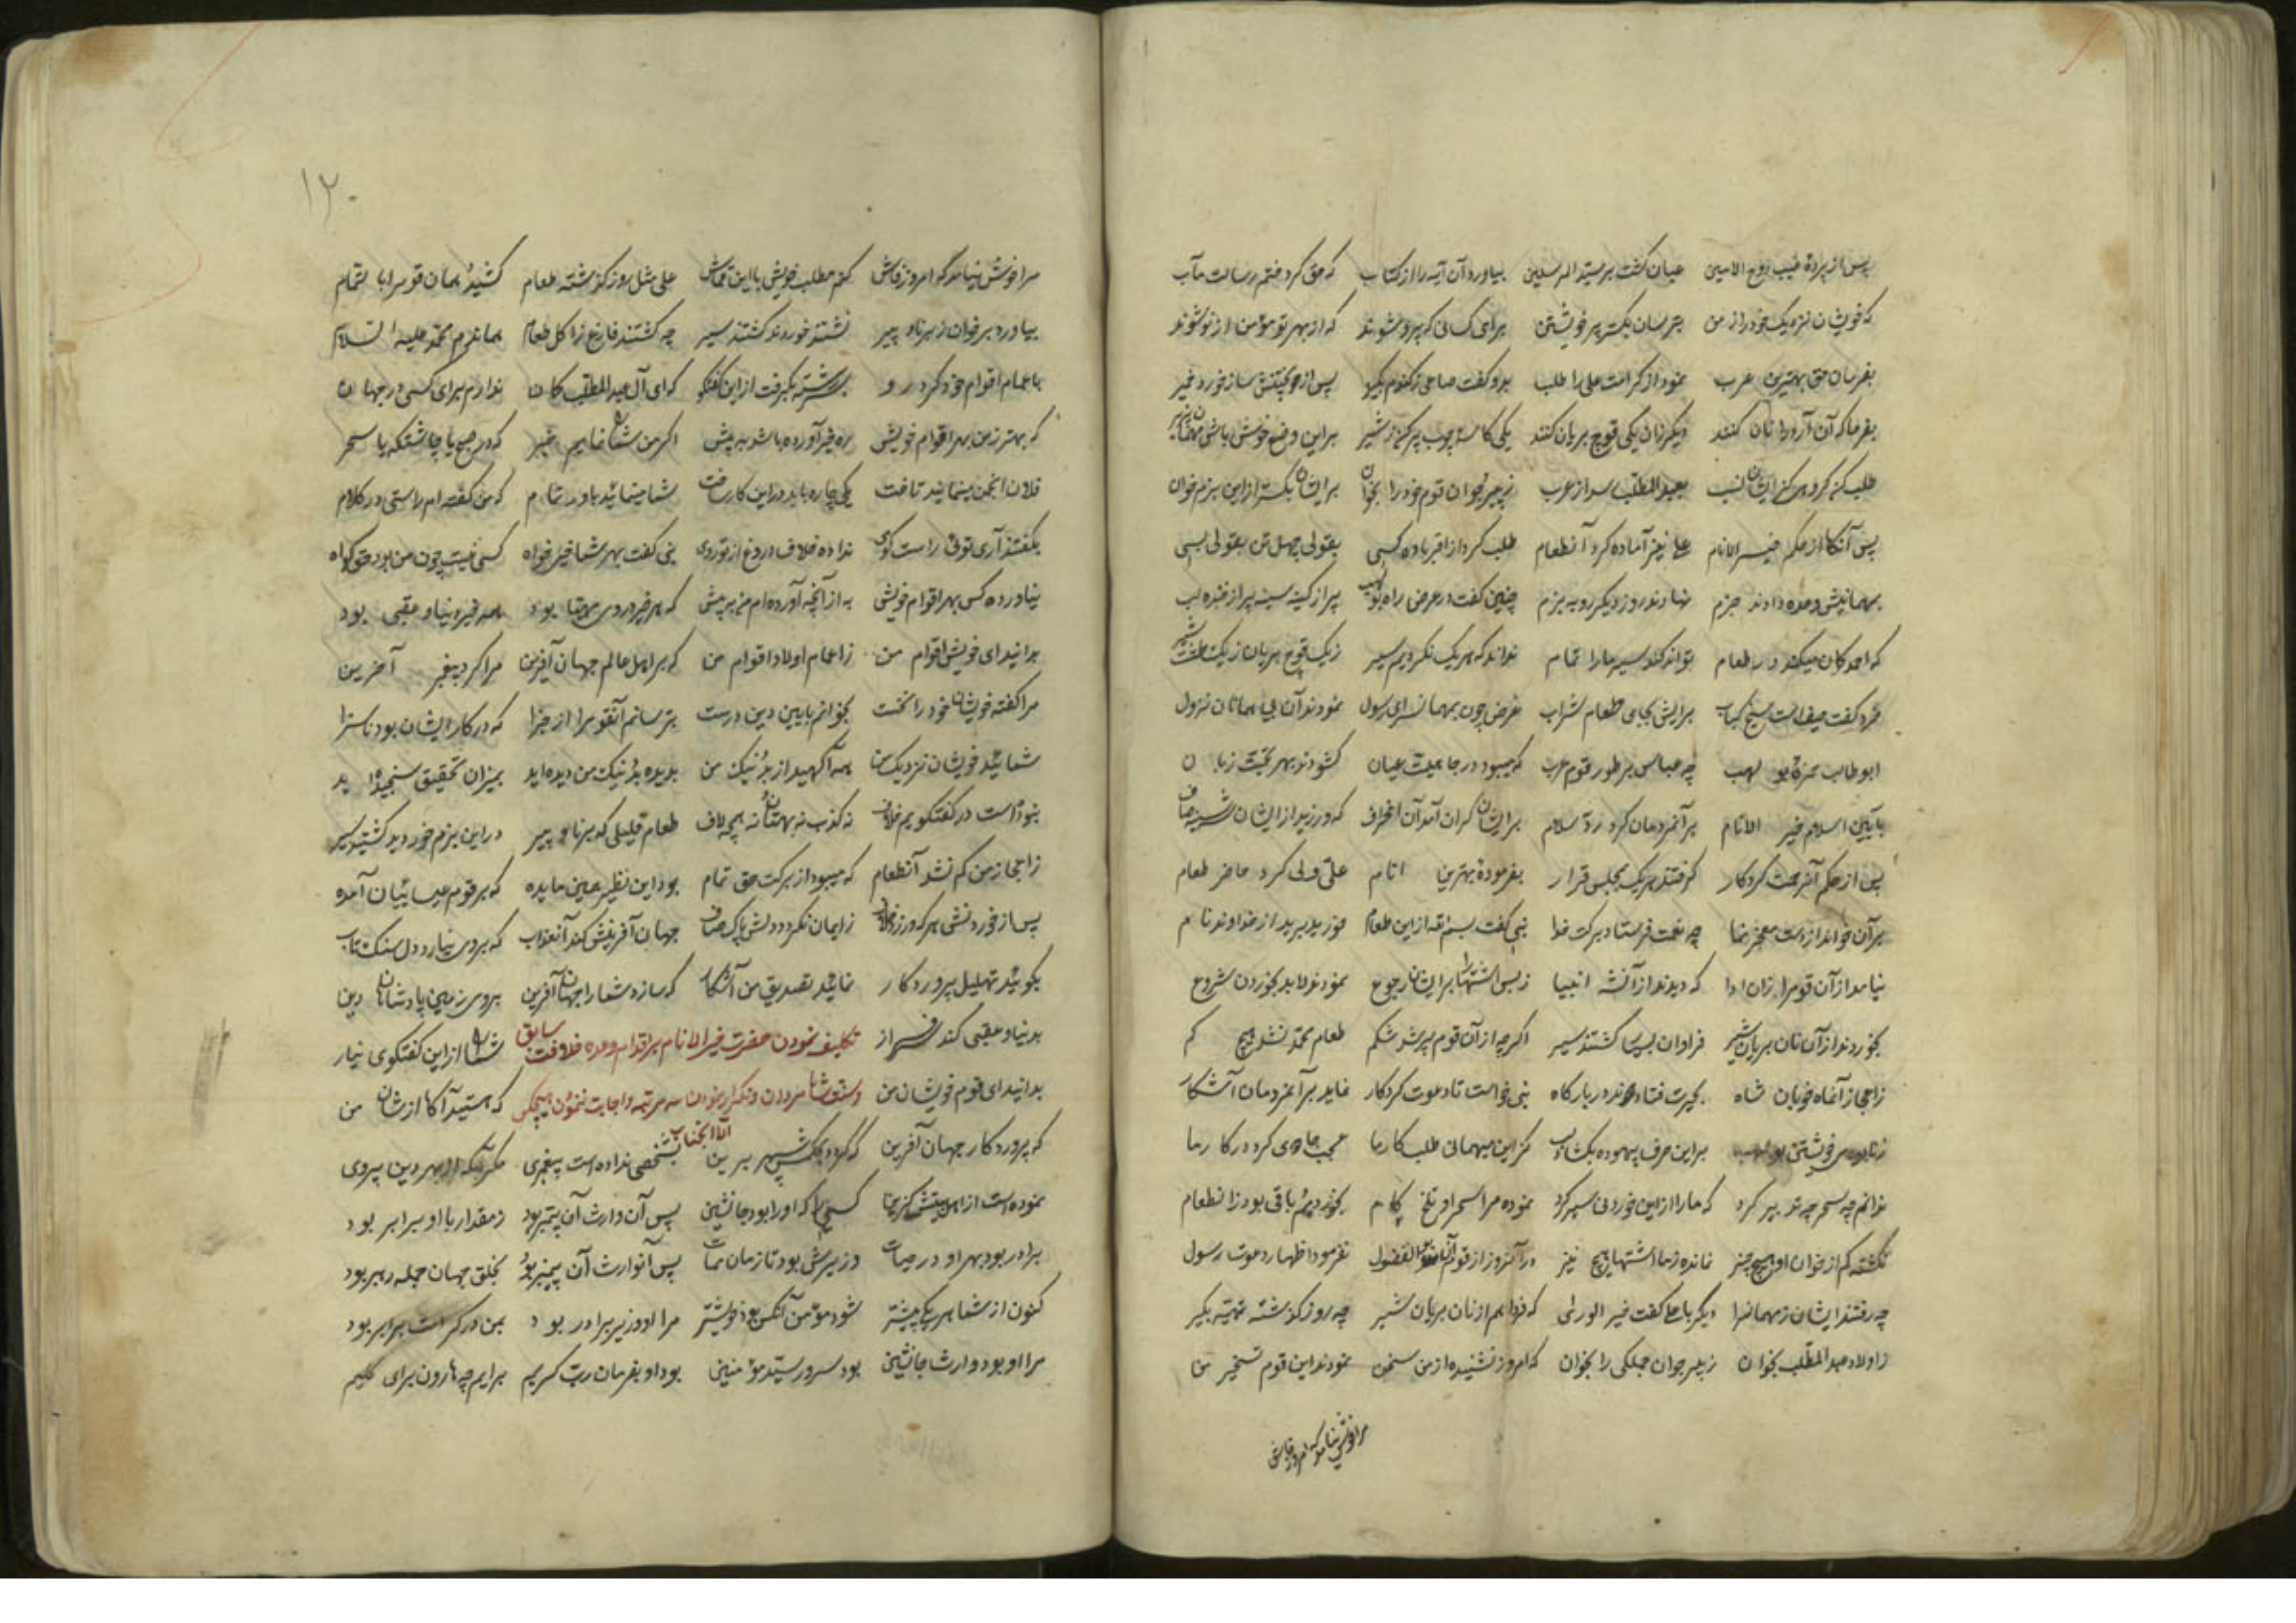 پس از پردۀ غیب روح الامین عیان گشت بر سید المرسلین بیاورد آن آیه را از کتاب که حق کرد ختم رسالت مآب
که خویشان نزدیک خود را ز من بترسان یکسر خویشتن برای کسانی که پیرو شوند که از بهر تو مؤمن از نو شوند
بفرمان حق بهترین عرب نمود از کرامت علی را طلب بدو گفت صاعی ز گندم بگیر پس از جو کپتش ساز خورد خمیر
بفرما که آن آرد را نان کنند دیگر زان یکی قوچ بریان کنند یکی کاسه چوب پر کن ز شیر براین وضع خوش باش
طلب کن گروهی کز ایشان نسب بعبدالمطلب رسد از عرب ز پیر و جوان قوم خود را بخوان برایشان یکسر از این بزم خوان
پس آنگاه از حکم خیر الانام علی نیز آماده کرد آنطعام طلب کرد از اقرباده کسی بقولی چهل تن بقولی بسی
بمهمانیش وعده دادند جزم نهادند روز دیگر رو به بزم چنین گفت در عرض راه بولهب پر از کینه سینه پر از خنده لب
که احمد گمان میکند در طعام تواند کند سیر ما را تمام نداند که هر یک نگردیم سیر ز یک قوچ بریان ز یک طشت شیر
برایش بجای طعام شراب غرض چون بمهمانسرای رسول نمودند آن بی مهانان نزول
ابوطالب حمزه بو لهب چه عباس بر طور قوم عرب که میبود در جاهلیت عیان گشودند بهر تحیت زبان
بآیین اسلام خیر الانام بر آنمردمان کرد رد سلام برایشان گران آمد آن انحراف که ورزید از ایشان
پس از حکم آنرحمت کردگار گرفتند هر یک بمجلس قرار بفرمودۀ بهترین انام علی ولی کرد حاضر طعام
بر آن خواند از دست معجز نما چه نعمت فرستاد برکت خدا نبی گفت بسم الله از این طعام خورید برید از خداوند نام
نیامد از آن قوم را زان ادا که دیدند از آنشه انبیا ز بس اشتها را برایشان رجوع نمودند لابد بخوردن شروع
بخوردند از آن نان بریان شیر فراوان بسی تا گشتند سیر اگرچه از آن قوم پر شد شکم طعام محمد نشد هیچ کم
ز اعجاز آنماه خوبان شاه بحیرت فتادند در بارگاه نبی خواست تا دعوت کردگار نماید بر آنمردمان آشکار
بو لهب براین حرف بیهوده بگشاد لب کز این میهمانی طلب کار ما عجب جادوی کرد در کار ما
ندانم چه سحر چه تدبیر کرد که ما را از این خوردنی سیر کرد نموده مرا سحر او تلخ کام بخوردیم باقی بود زانطعام
نگشته کم از خوان او هیچ چیز نمانده ز ما اشتها هیچ نیز در آنروز از قوم نفرمود اظهار دعوت رسول
چه رفتند ایشان ز مهمانسرا دیگر با علی گفت خیر الوری که فردا هم از نان بریان شیر چه روز گذشته تهیه بگیر
ز اولاد عبدالمطلب بخوان ز پیر جوان جملگی را بخوان که امروز نشنیده از من سخن نمودند این قوم تسخیر من
مرا خوش نیامد که امروز فاش
۱۲۰
مرا خوش نیامد که امروز فاش کنم مطلب خویش با این قماش علی مثل روز گذشته طعام کشید همان قوم را با تمام
بیاورد بر خوان ز برنا و پیر نشستند خوردند گشتند سیر چه گشتند فارغ ز اکل طعام هماندم محمد علیه السلام
باعمام اقوام خود کرد رو بگرفت از این گفتگو که ای آل عبدالمطلب کان ندارم برای کسی در جهان
که بهتر ز من بهر اقوام خویش ره خیر آورده باشد به پیش اگر من شما را نمایم خبر که در صبح یا چاشتگه یا سحر
فلان انجمن مینمایند تاخت یکی چاره باید در این کار ساخت شما مینمائید باور تمام که من گفته ام راستی در کلام
بگفتند آری توئی راست گوی نداده خلاف دروغ از تو روی نبی گفت بهر شما خیرخواه کسی نیست چون من بود حق گواه
نیاورده کس بهر اقوام خویش به از آنچه آورده ام من به پیش که هر خیر در وی مهیا بود همه خیر دنیا و عقبی بود
بدانید ای خویش اقوام من ز اعمام اولاد اقوام من که بر اهل عالم جهان آفرین مرا کرد پیغمبر آخرین
مرا گفته خویشان خود را نخست بخوانم بآیین دین درست بترسانم آنقوم را از جزا که در کار ایشان بود ناسزا
شمائید خویشان نزدیک من همه آگهید از بد و نیک من بدیده بد و نیک من دیده اید بمیزان تحقیق سنجیده اید
نبوده است در گفتگویم خلاف نه کذب نه بهتان نه هیچ لاف طعام قلیلی که برنا و پیر در این بزم خوردید گشتید سیر
ز اعجاز من کم نشد آنطعام که میبود از برکت حق تمام بود این نظیر همین مایده که بر قوم عیسائیان آمده
پس از خوردنش هر که ورزد خلاف ز ایمان نگردد دلش پاک صاف جهان آفرینش کند آنعذاب که بروی نیارد دل سنگ تاب
بگوئید تهلیل پروردگار نمائید تصدیق من آشکار که سازد شما را جهان آفرین بروی زمین پادشاهان دین
بدنیا و عقبی کند سرفراز تکلیف نمودن حضرت خیر الانام بر اقدام وعده خلافت سابق شما را از این گفتگوی نیاز
بدانید ای قوم خویشان من که هستید آگاه از شان من
الا آنجناب
که پروردگار جهان آفرین که گردد بحکمش سپهر برین بشخصی نداده است پیغمبری مگر آنکه از بهر دین پیروی
نموده است از اهل بیتش گزین کسی را که او را بود جانشین پس آن وارث آن پیمبر بود ز مقدار با او برابر بود
برادر بود بهر او در حیات وزیرش بود تا زمان ممات پس آنوارث آن پیمبر بود بخلق جهان جمله رهبر بود
کنون از شما هر یک پیشتر شود مؤمن آنکس بود خویشتر مرا او وزیر برادر بود بمن در کرامت برابر بود
مرا او بود وارث جانشین بود سرور سید مؤمنین بود او بفرمان رب کریم برایم چه هارون برای کلیم